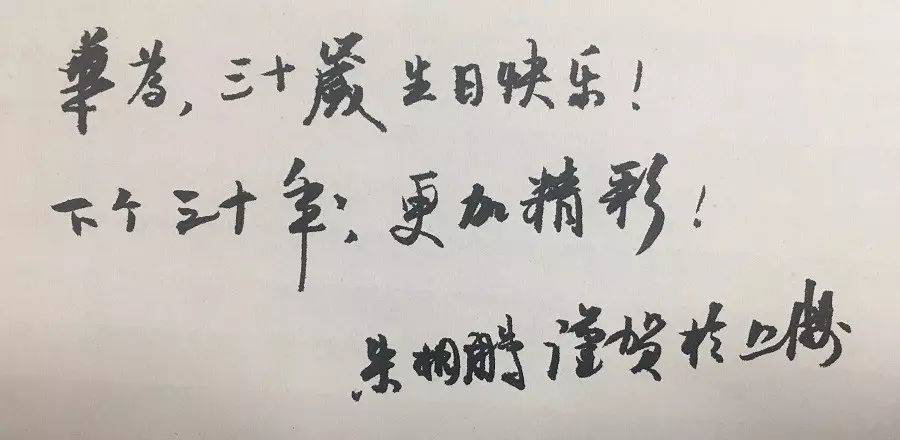 華為，三十歲生日快乐！
下个三十年，更加精彩！
朱相鹏謹贺於上海